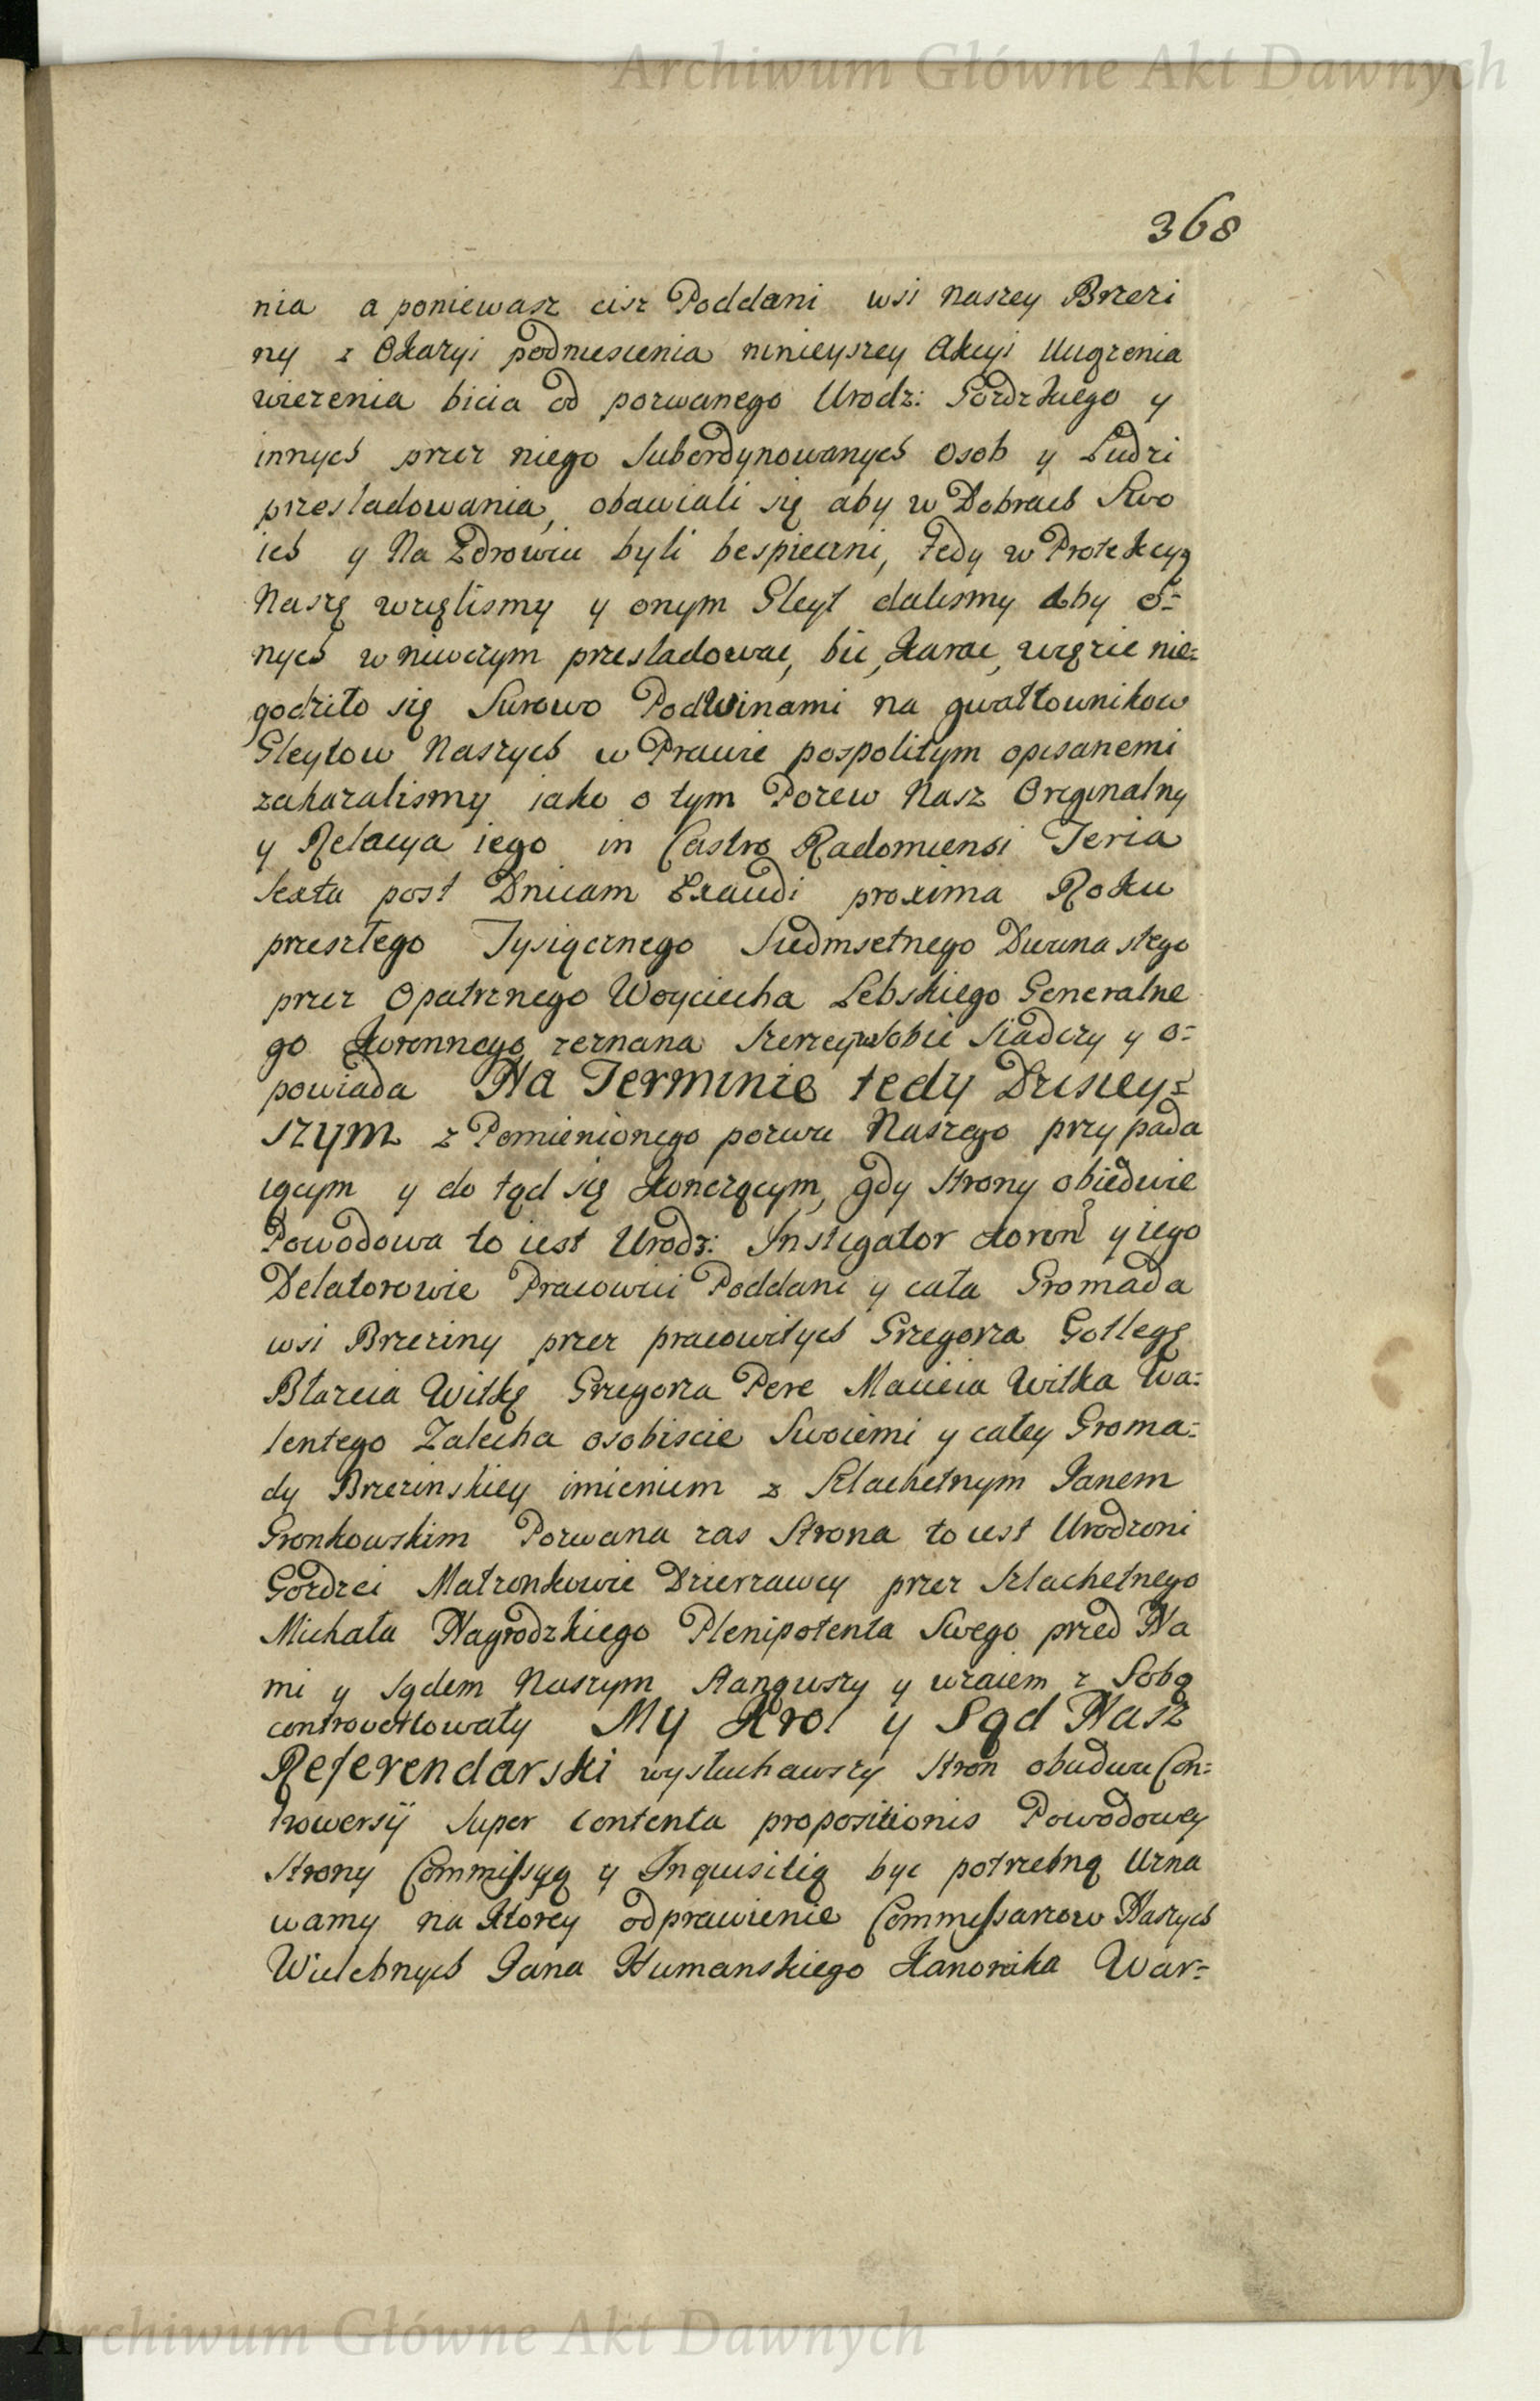 Archiwum Główne Akt Dawnych
368
nia a poniewasz cisz Poddani wsi naszey Brzezi
ny z Okazyi podniesienia ninieyszey Akcyi Uiąrenia
wiezenia bicia od pozwanego Urodz: Gozdzkiego y
innych przez niego Subordynowanych Osob y Ludzi
przesladowania, obawiali się aby w Dobrach Swo
ich y Na Zdrowiu byli bespieczni, tedy w Protekcyą
Naszę wzięlismy y onym Gleyt dalismy Aby o=
nych w niwczym przesladowac, bic, karac, więzic nie=
godziło się Surowo Pod Winami na gwałtownikow
Gleytow Naszych w Prawie pospolitym opisanemi
zakazalismy iako o tym Pozew Nasz Oryginalny
y Relacya iego in Castro Radomiensi Feria
Sexta post Dnicam Exaudi proxima Roku
przeszłego Tysiącznego Siedmsetnego Dwunastego
przez Opatrznego Woyciecha Lebskiego Generalne
go Koronnego zeznana Szerzey w Sobie Siadczy y o=
powiada Na Terminie tedy Dzisiey=
szym z Pomienionego pozwu Naszego przypada
iącym y do tąd się konczącym, gdy strony obiedwie
Powodowa to iest Urodz: Instigator koron y iego
Delatorowie Pracowici Poddani y cała Gromada
wsi Brzeziny przez pracowitych Grzegorza Gollegę
Błazeia Witkę Grzegorza Pere Macieia Witka Wa=
lentego Zalecha osobiscie Swoiemi y całey Groma=
dy Brzezinskiey imieniem z Szlachetnym Janem
Gronkowskim Pozwana zas Strona to iest Urodzoni
Gozdzci Małzonkowie Dzierzawcy przez Szlachetnego
Michała Nagrodzkiego Plenipotenta Swego przed Na
mi y Sądem Naszym Stanąwszy y wzaiem z Sobą
controvertowały My Krol y Sąd Nasz
Referendarski wysłuchawszy Stron obudwu Con=
trowersÿ Super Contenta propositionis Powodowey
Strony Commissyą y Inquisitią byc potrzebną Uzna
wamy na Ktorey odprawienie Commissarzow Naszych
Wielebnych Jana Humanskiego Kanonika War=
Archiwum Główne Akt Dawnych